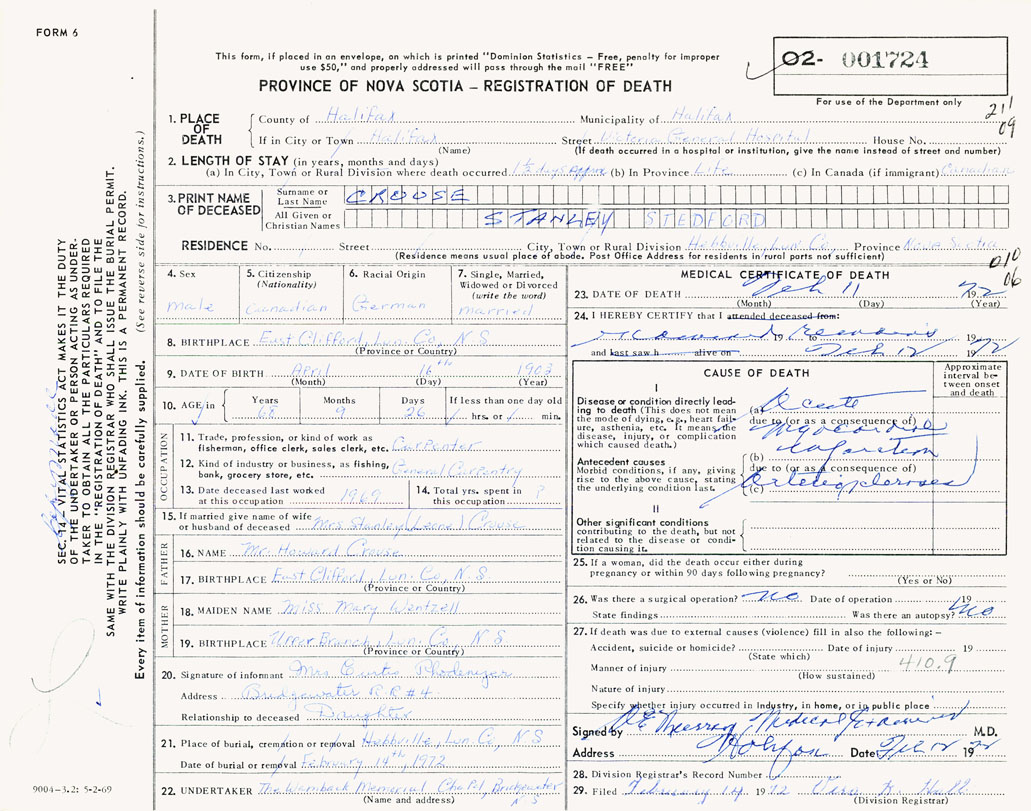 FORM 6
This form, if placed in an envelope, on which is printed "Dominion Statistics – Free, penalty for improper
use $50," and properly addressed will pass through the mail "FREE"
PROVINCE OF NOVA SCOTIA – REGISTRATION OF DEATH
02- 001724
For use of the Department only
211
09
1. PLACE OF DEATH
County of Halifax Municipality of Halifax
If in City or Town Halifax Street Victoria General Hospital House No.
(Name) (If death occurred in a hospital or institution, give the name instead of street and number)
2. LENGTH OF STAY (in years, months and days)
(a) In City, Town or Rural Division where death occurred 1½ days approx (b) In Province Life (c) In Canada (if immigrant) Canadian
3. PRINT NAME OF DECEASED
Surname or Last Name CROUSE
All Given or Christian Names STANLEY STEDFORD
RESIDENCE No. Street City, Town or Rural Division Hebbville, Lun. Co., Province Nova Scotia
(Residence means usual place of abode. Post Office Address for residents in rural parts not sufficient)
010
06
4. Sex
male
5. Citizenship (Nationality)
Canadian
6. Racial Origin
German
7. Single, Married, Widowed or Divorced (write the word)
married
8. BIRTHPLACE East Clifford, Lun. Co., N.S
(Province or Country)
9. DATE OF BIRTH April 16th 1903
(Month) (Day) (Year)
10. AGE in Years 68 Months 9 Days 26 If less than one day old hrs. or min.
OCCUPATION
11. Trade, profession, or kind of work as fisherman, office clerk, sales clerk, etc. Carpenter
12. Kind of industry or business, as fishing, bank, grocery store, etc. General Carpentry
13. Date deceased last worked at this occupation 1969
14. Total yrs. spent in this occupation ?
15. If married give name of wife or husband of deceased Mrs Stanley (Leone) Crouse
FATHER
16. NAME Mr. Howard Crouse
17. BIRTHPLACE East Clifford, Lun. Co, N.S
(Province or Country)
MOTHER
18. MAIDEN NAME Miss Mary Wentzell
19. BIRTHPLACE Upper Branch, Lun. Co, N.S
(Province or Country)
20. Signature of informant Mrs Curtis Rhodenizer
Address Bridgewater R R #4
Relationship to deceased Daughter
21. Place of burial, cremation or removal Hebbville, Lun. Co, N S
Date of burial or removal February 14th, 1972
22. UNDERTAKER The Wamback Memorial Chapel, Bridgewater N S
(Name and address)
MEDICAL CERTIFICATE OF DEATH
23. DATE OF DEATH Feb 11 1972
(Month) (Day) (Year)
24. I HEREBY CERTIFY that I attended deceased from:
viewed remains 19 to
and last saw h alive on Feb 12 1972
CAUSE OF DEATH
Approximate interval between onset and death
I
Disease or condition directly leading to death (This does not mean the mode of dying, e.g., heart failure, asthenia, etc. It means the disease, injury, or complication which caused death.)
(a) Acute
due to (or as a consequence of)
Myocardial
(b) Infarction
Antecedent causes
Morbid conditions, if any, giving rise to the above cause, stating the underlying condition last.
due to (or as a consequence of)
(c) Arteriosclerosis
II
Other significant conditions contributing to the death, but not related to the disease or condition causing it.
25. If a woman, did the death occur either during pregnancy or within 90 days following pregnancy?
(Yes or No)
26. Was there a surgical operation? No Date of operation 19
State findings Was there an autopsy? No
27. If death was due to external causes (violence) fill in also the following: –
Accident, suicide or homicide? Date of injury 19
(State which)
410.9
Manner of injury
(How sustained)
Nature of injury
Specify whether injury occurred in Industry, in home, or in public place
Signed by Medical Examiner M.D.
Address Halifax Date Feb 12 1972
28. Division Registrar's Record Number
29. Filed February 14 1972 Hall
(Division Registrar)
SEC. 14 – VITAL STATISTICS ACT MAKES IT THE DUTY
OF THE UNDERTAKER OR PERSON ACTING AS UNDER-
TAKER TO OBTAIN ALL THE PARTICULARS REQUIRED
IN THE "REGISTRATION OF DEATH" AND TO FILE THE
SAME WITH THE DIVISION REGISTRAR WHO SHALL ISSUE THE BURIAL PERMIT.
WRITE PLAINLY WITH UNFADING INK. THIS IS A PERMANENT RECORD.
Every item of information should be carefully supplied. (See reverse side for instructions.)
9004-3.2: 5-2-69